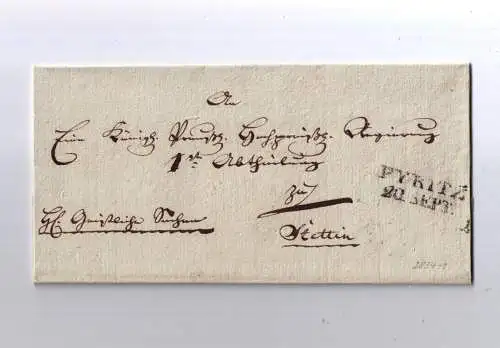 An
Eine Königl. Preuß. Hochpreißl. Regierung
1te Abtheilung
zu
Stettin
Geistliche Sachen
PYRITZ
20 SEPT.